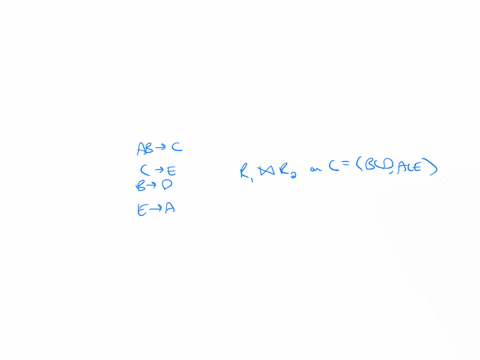 AB → C
C → E
B → D
E → A
R₁ ⋈ R₂ on C = (BCD, ACE)